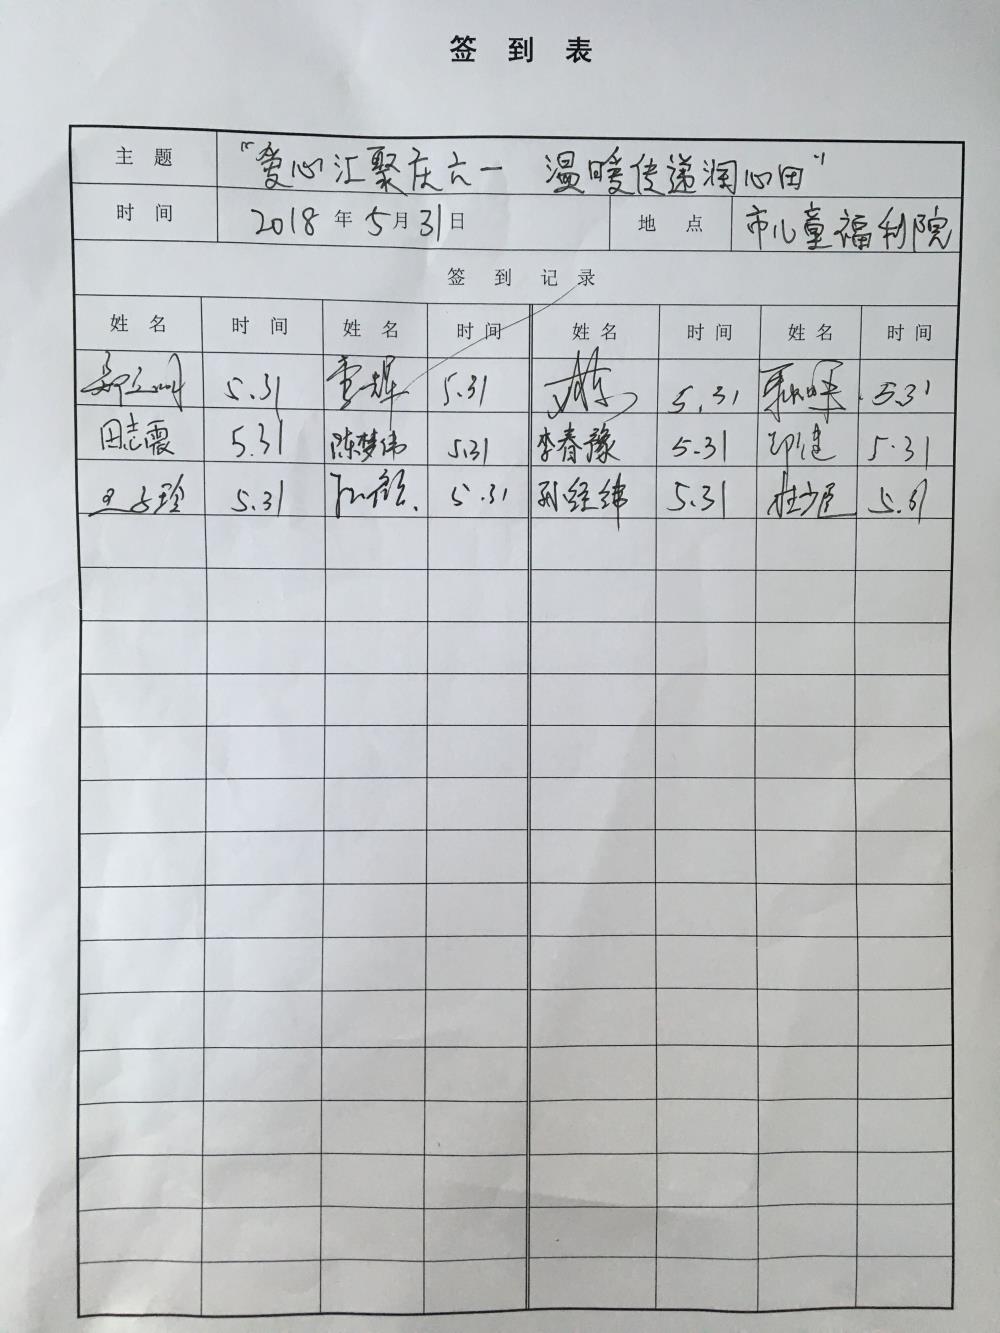 签 到 表
主 题 “爱心汇聚庆六一 温暖传递润心田”
时 间 2018 年 5 月 31 日 地 点 市儿童福利院
签 到 记 录
姓 名 时 间 姓 名 时 间 姓 名 时 间 姓 名 时 间
5.31 5.31 5.31 5.31
田志霞 5.31 陈梦伟 5.31 李春豫 5.31 5.31
5.31 5.31 孙经纬 5.31 5.31